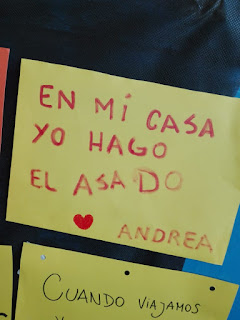 EN MÍ CASA
YO HAGO
EL ASADO
ANDREA
CUANDO VIAJAMOS